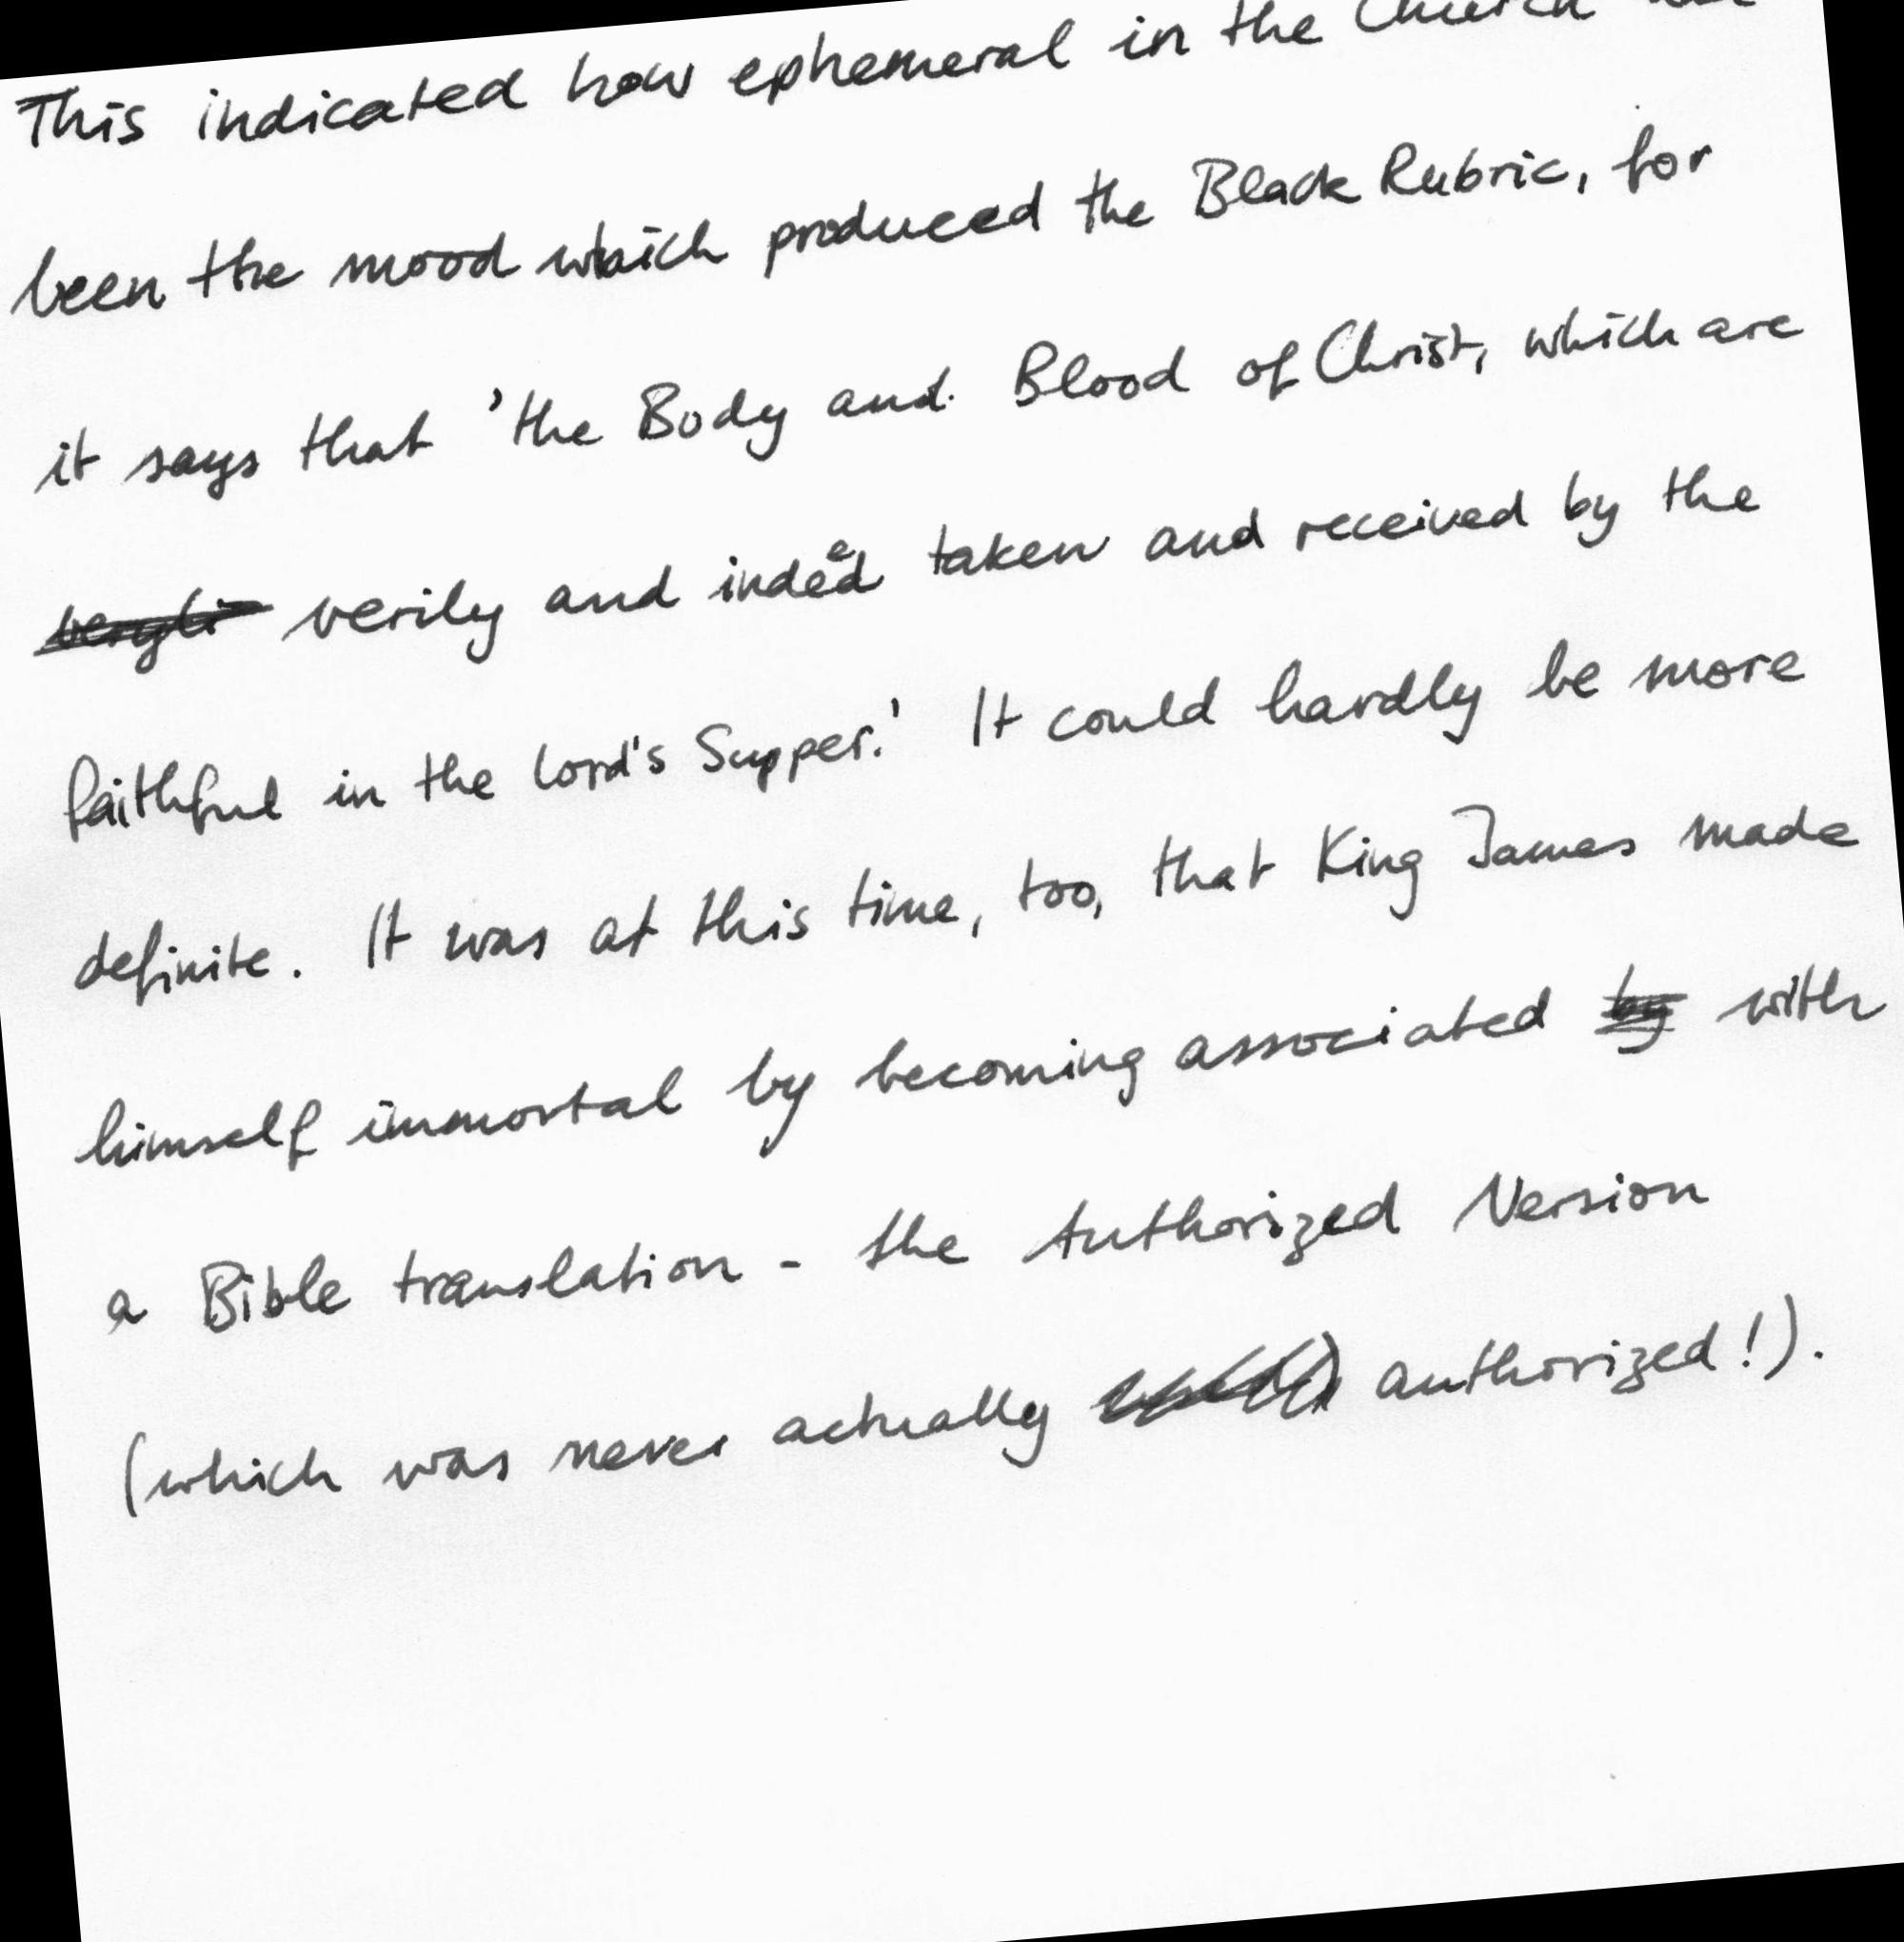 This indicated how ephemeral in the Church had
been the mood which produced the Black Rubric, for
it says that 'the Body and Blood of Christ, which are
verily and indeed taken and received by the
faithful in the Lord's Supper.' It could hardly be more
definite. It was at this time, too, that King James made
himself immortal by becoming associated by with
a Bible translation - the Authorized Version
(which was never actually authorized!).